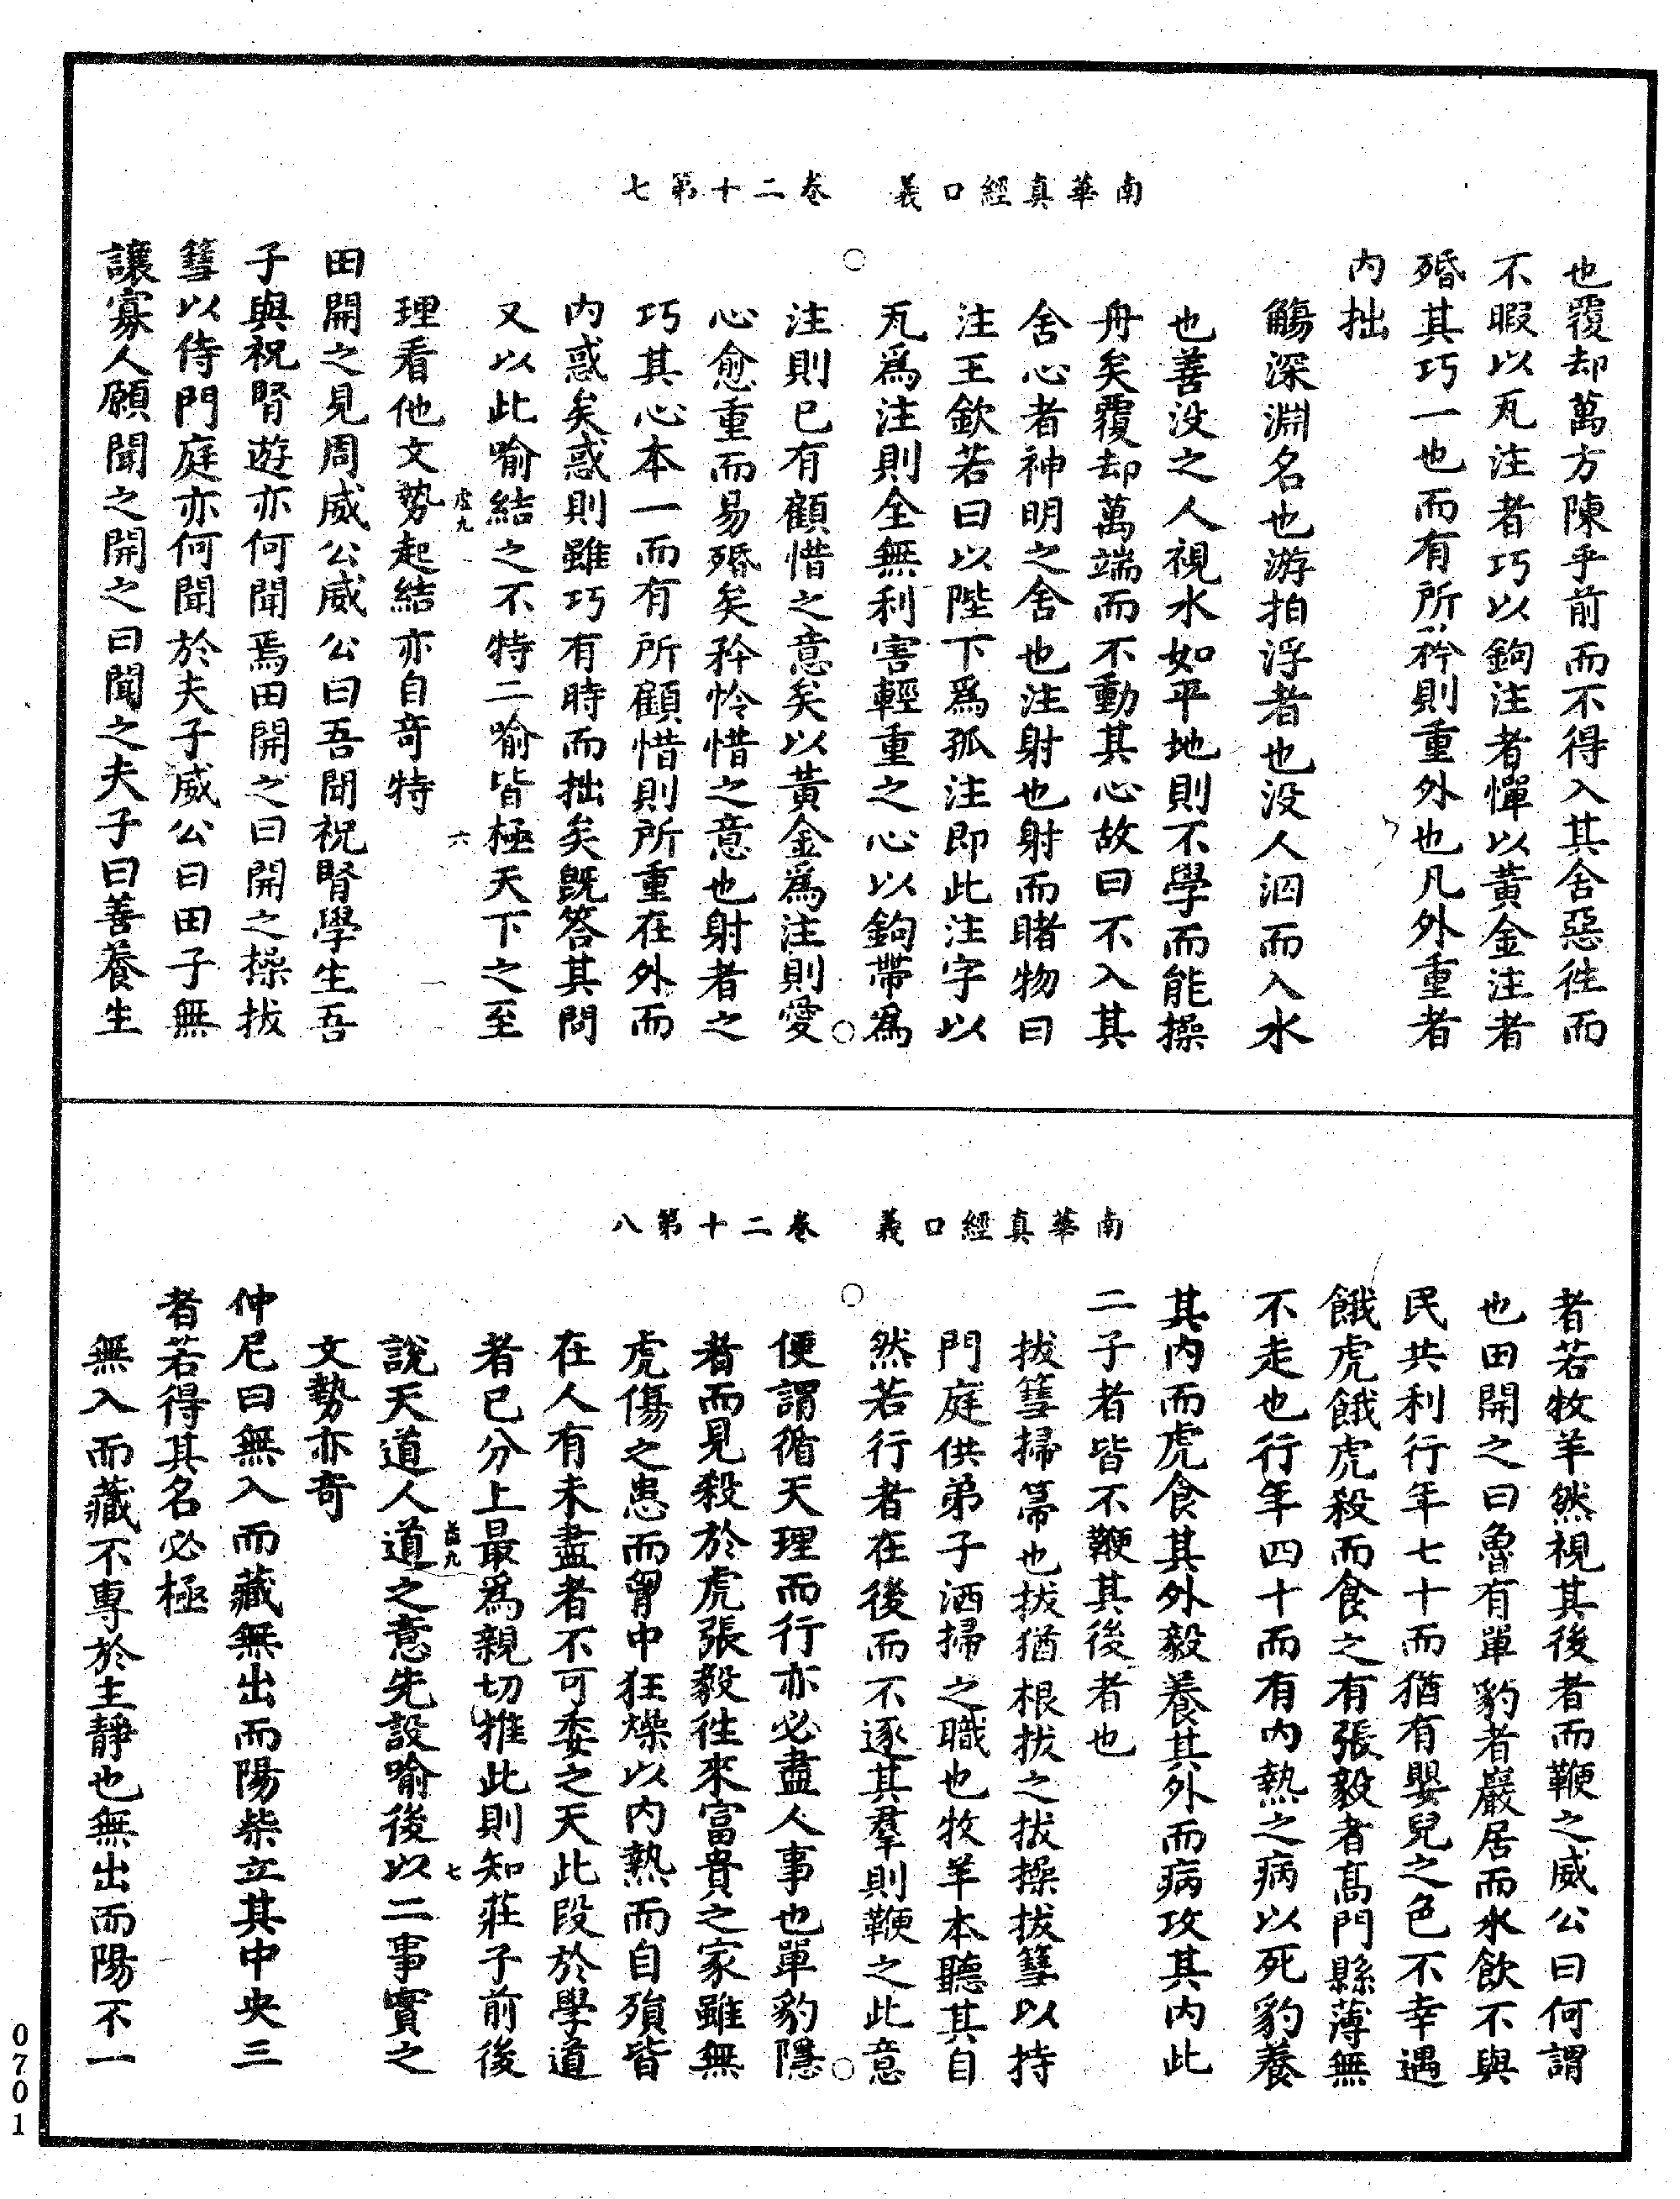 南華真經口義　卷二十第七
也覆却萬方陳乎前而不得入其舍惡徃而
不暇以瓦注者巧以鉤注者憚以黃金注者
殙其巧一也而有所矜則重外也凡外重者
內拙
觴深淵名也游拍浮者也没人泅而入水
也善没之人視水如平地則不學而能操
舟矣覆却萬端而不動其心故曰不入其
舍心者神明之舍也注射也射而賭物曰
注王欽若曰以陛下爲孤注即此注字以
瓦爲注則全無利害輕重之心以鉤帶爲
注則已有顧惜之意矣以黃金爲注則愛
心愈重而易殙矣矜怜惜之意也射者之
巧其心本一而有所顧惜則所重在外而
內惑矣惑則雖巧有時而拙矣旣答其問
又以此喻結之不特二喻皆極天下之至
虛九　六
理看他文勢起結亦自竒特
田開之見周威公威公曰吾聞祝腎學生吾
子與祝腎遊亦何聞焉田開之曰開之操拔
篲以侍門庭亦何聞於夫子威公曰田子無
讓寡人願聞之開之曰聞之夫子曰善養生
南華真經口義　卷二十第八
者若牧羊然視其後者而鞭之威公曰何謂
也田開之曰魯有單豹者巖居而水飲不與
民共利行年七十而猶有嬰兒之色不幸遇
餓虎餓虎殺而食之有張毅者髙門縣薄無
不走也行年四十而有內熱之病以死豹養
其內而虎食其外毅養其外而病攻其內此
二子者皆不鞭其後者也
拔篲掃箒也拔猶根拔之拔操拔篲以持
門庭供弟子洒掃之職也牧羊本聽其自
然若行者在後而不逐其羣則鞭之此意
便謂循天理而行亦必盡人事也單豹隱
者而見殺於虎張毅徃來富貴之家雖無
虎傷之患而胷中狂燥以內熱而自殞皆
在人有未盡者不可委之天此段於學道
者已分上最爲親切推此則知莊子前後
七
說天道人道之意先設喻後以二事實之
文勢亦竒
仲尼曰無入而藏無出而陽柴立其中央三
者若得其名必極
無入而藏不專於主靜也無出而陽不一
0701